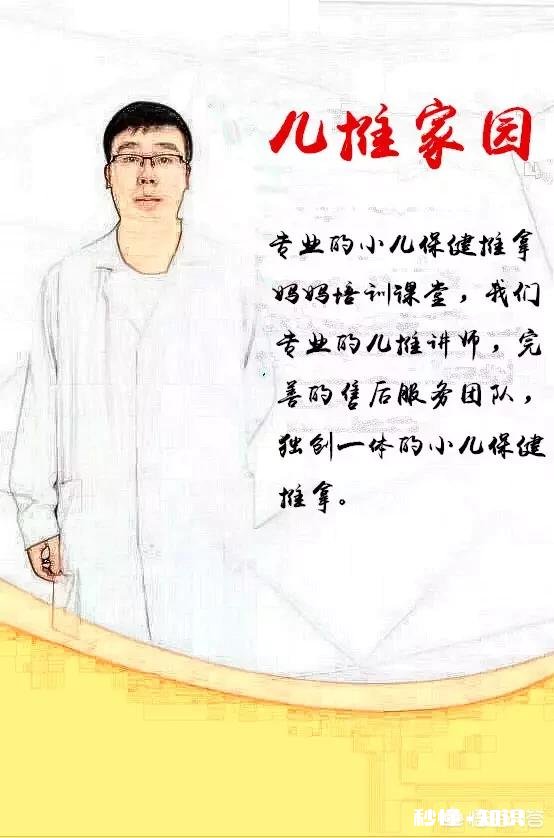 儿推家园
专业的小儿保健推拿
妈妈培训课堂，我们
专业的儿推讲师，完
善的售后服务团队，
独创一体的小儿保健
推拿。
秒懂·知识